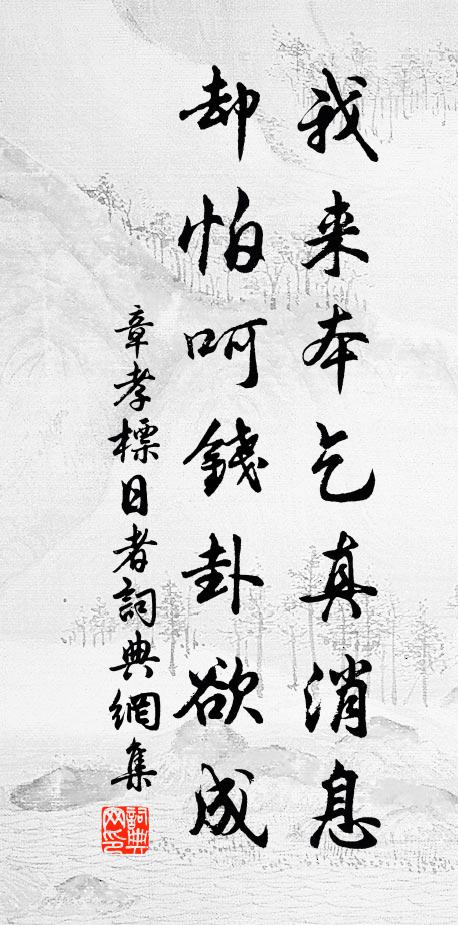 我来本乞真消息
却怕呵錢卦欲成
章孝標日者詞典網集
詞典網印